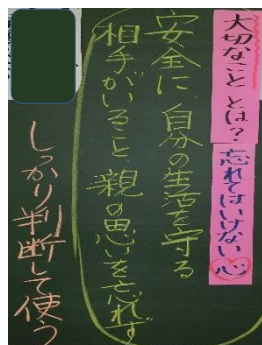 大切なこと とは?忘れてはいけない心
安全に自分の生活を守る
相手がいること、親の思いを忘れず
しっかり判断して使う